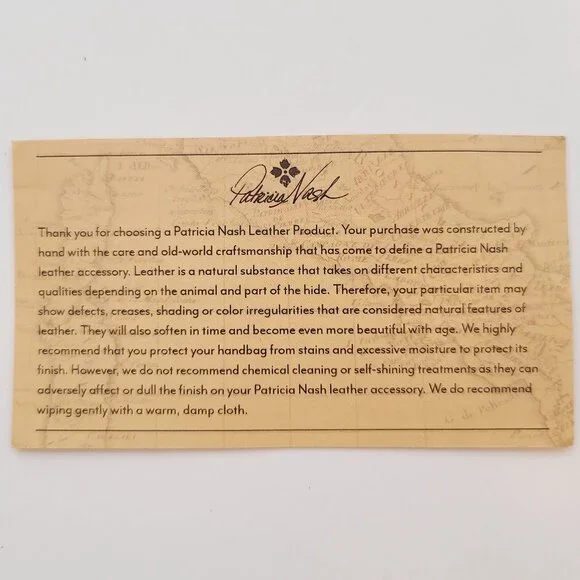 Patricia Nash
Thank you for choosing a Patricia Nash Leather Product. Your purchase was constructed by
hand with the care and old-world craftsmanship that has come to define a Patricia Nash
leather accessory. Leather is a natural substance that takes on different characteristics and
qualities depending on the animal and part of the hide. Therefore, your particular item may
show defects, creases, shading or color irregularities that are considered natural features of
leather. They will also soften in time and become even more beautiful with age. We highly
recommend that you protect your handbag from stains and excessive moisture to protect its
finish. However, we do not recommend chemical cleaning or self-shining treatments as they can
adversely affect or dull the finish on your Patricia Nash leather accessory. We do recommend
wiping gently with a warm, damp cloth.